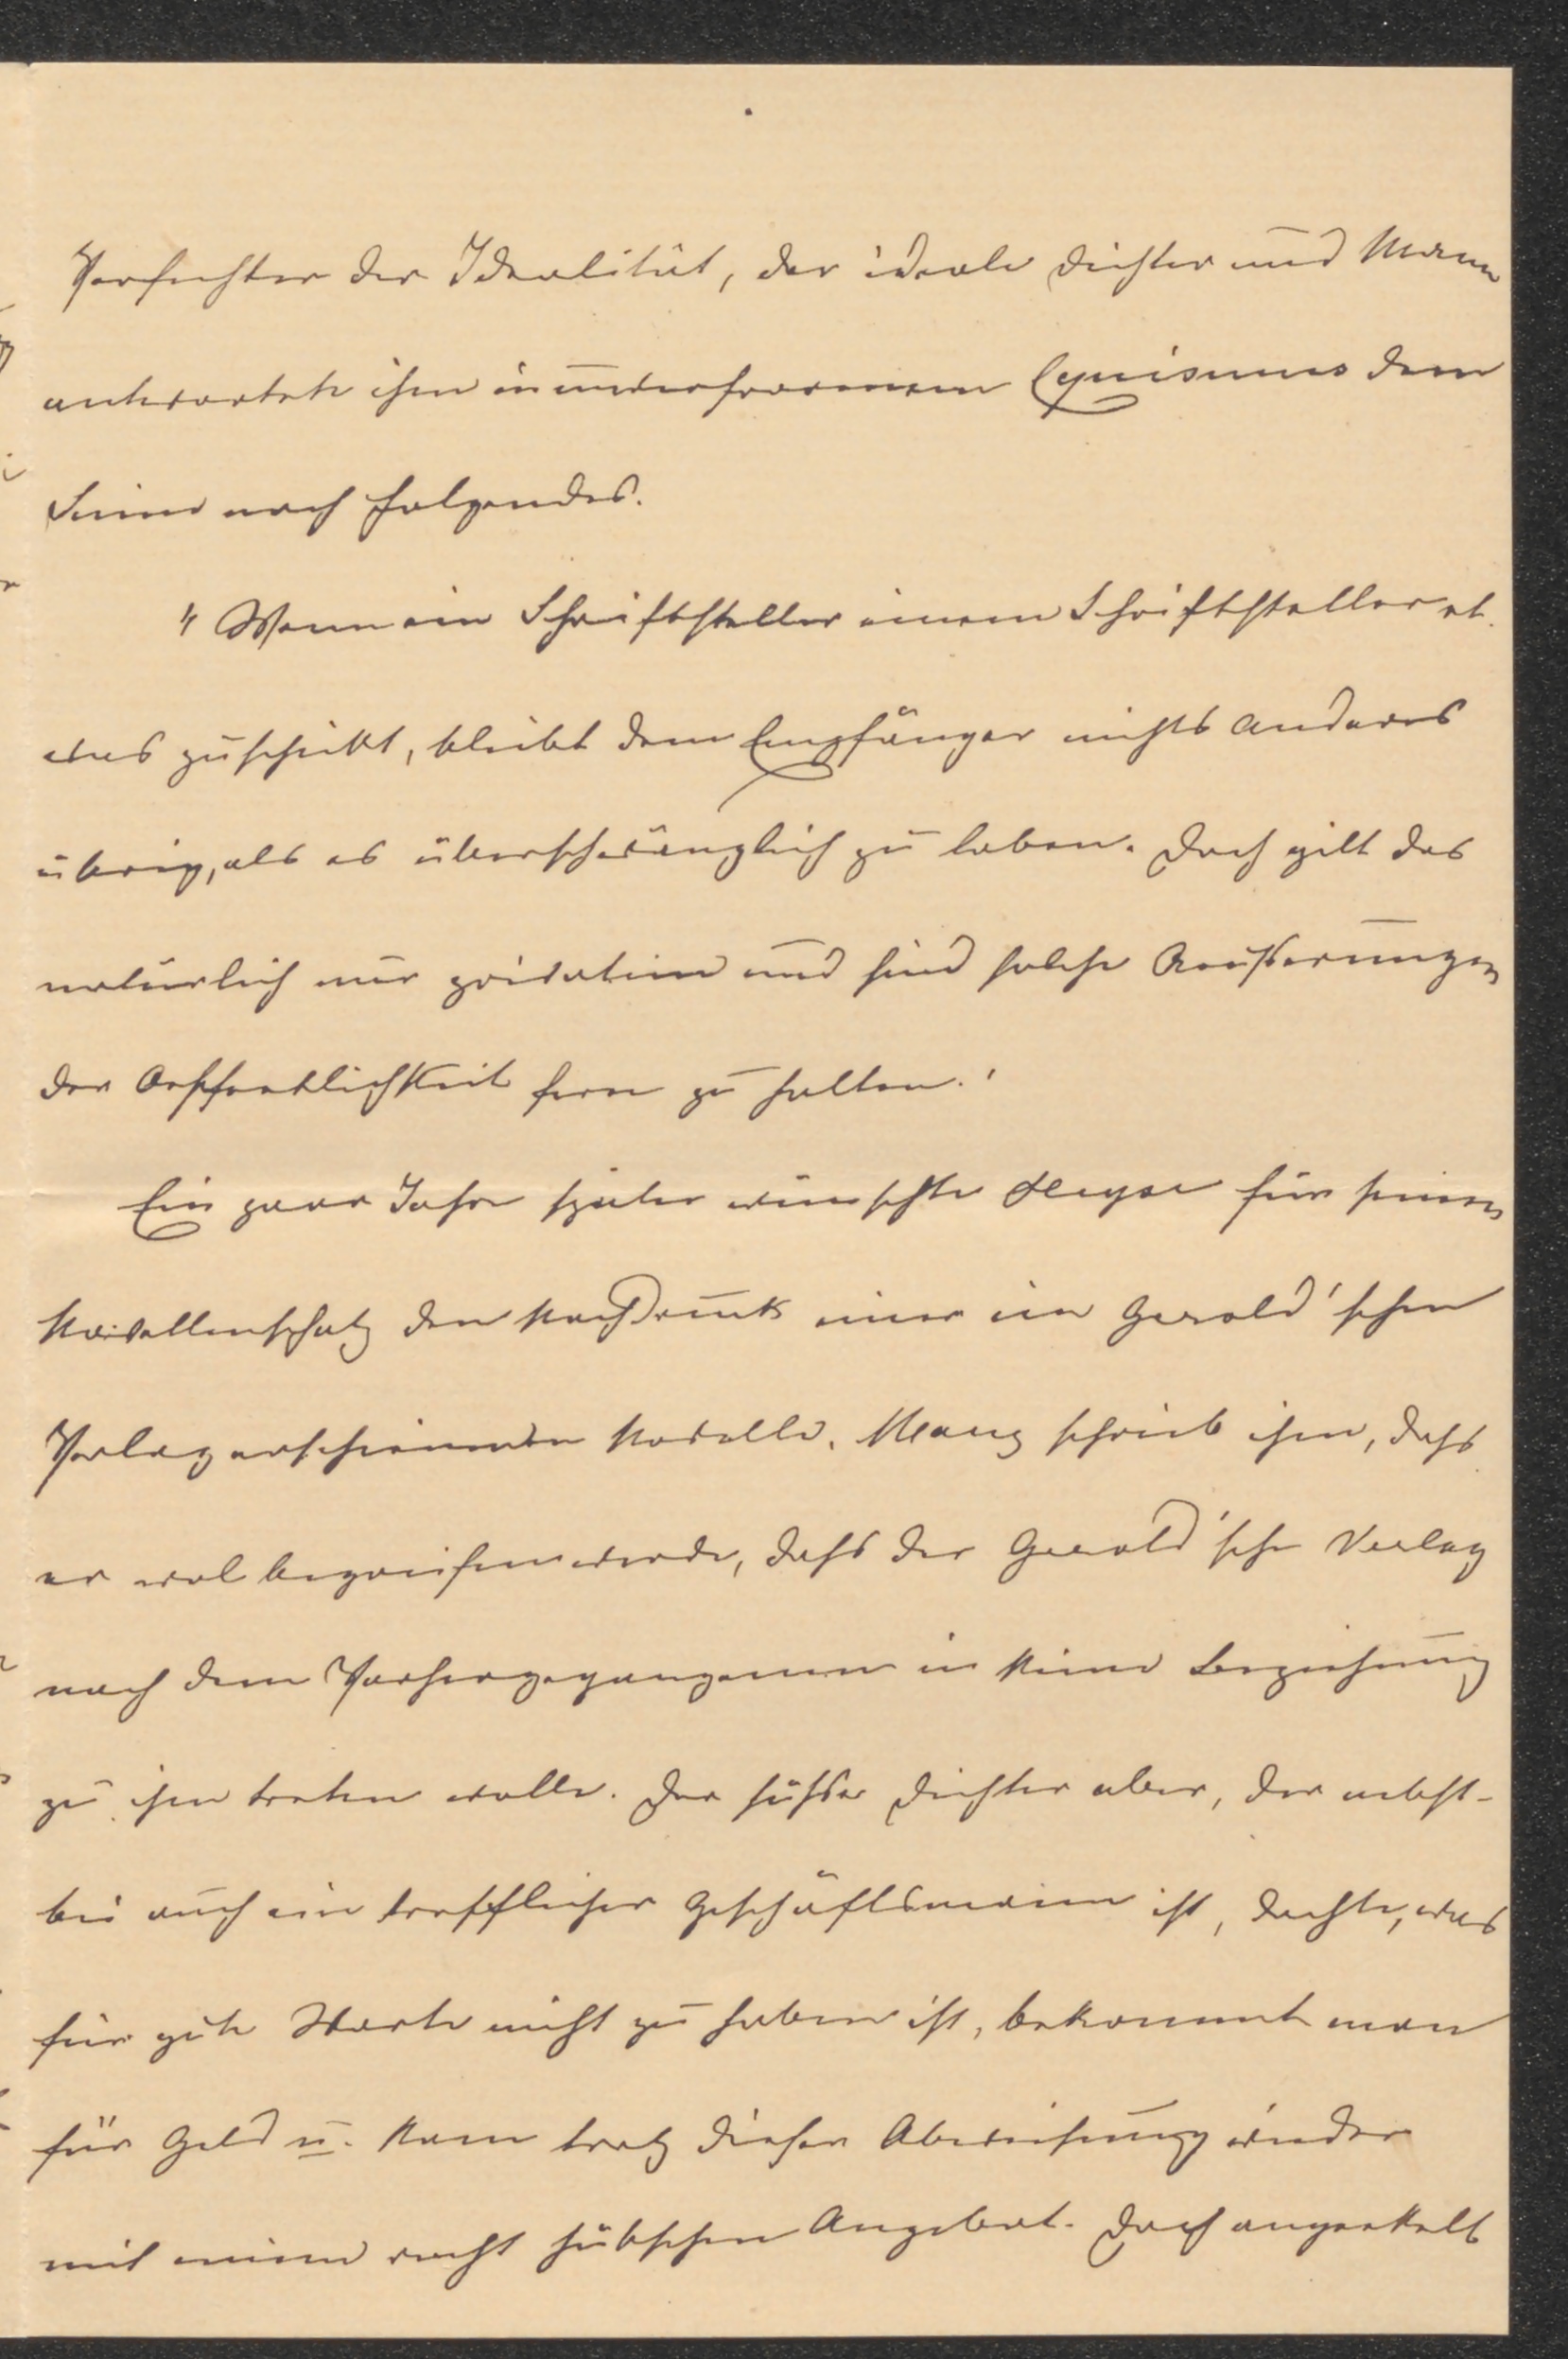 Verfechter der Idealität, der ideale Dichter und Mann
antwortete ihm in unverfrorenem Cynismus dem
Sinne nach folgendes.
"Wenn ein Schriftsteller einem Schriftsteller et-
was zuschickt, bleibt dem Empfänger nichts anderes
übrig, als es überschwänglich zu loben. Doch gilt das
natürlich nur privatim und sind solche Aeußerungen
der Oeffentlichkeit fern zu halten."
Ein paar Jahre später wünschte Heyse für seinen
Novellenschatz den Nachdruck einer im Gerold'schen
Verlag erschienenen Novelle. Manz schrieb ihm, daſs
er wol begreifen werde, daſs der Gerold'sche Verlag
nach dem Vorhergegangenen in keine Beziehung
zu ihm treten wolle. Der süßse Dichter aber, der nebst-
bei auch ein trefflicher Geschäftsmann ist, dachte, was
für gute Worte nicht zu haben ist, bekommt man
für Geld u. kam trotz dieser Abweisung wieder
mit einem recht hübschen Angebot. Doch angeekelt